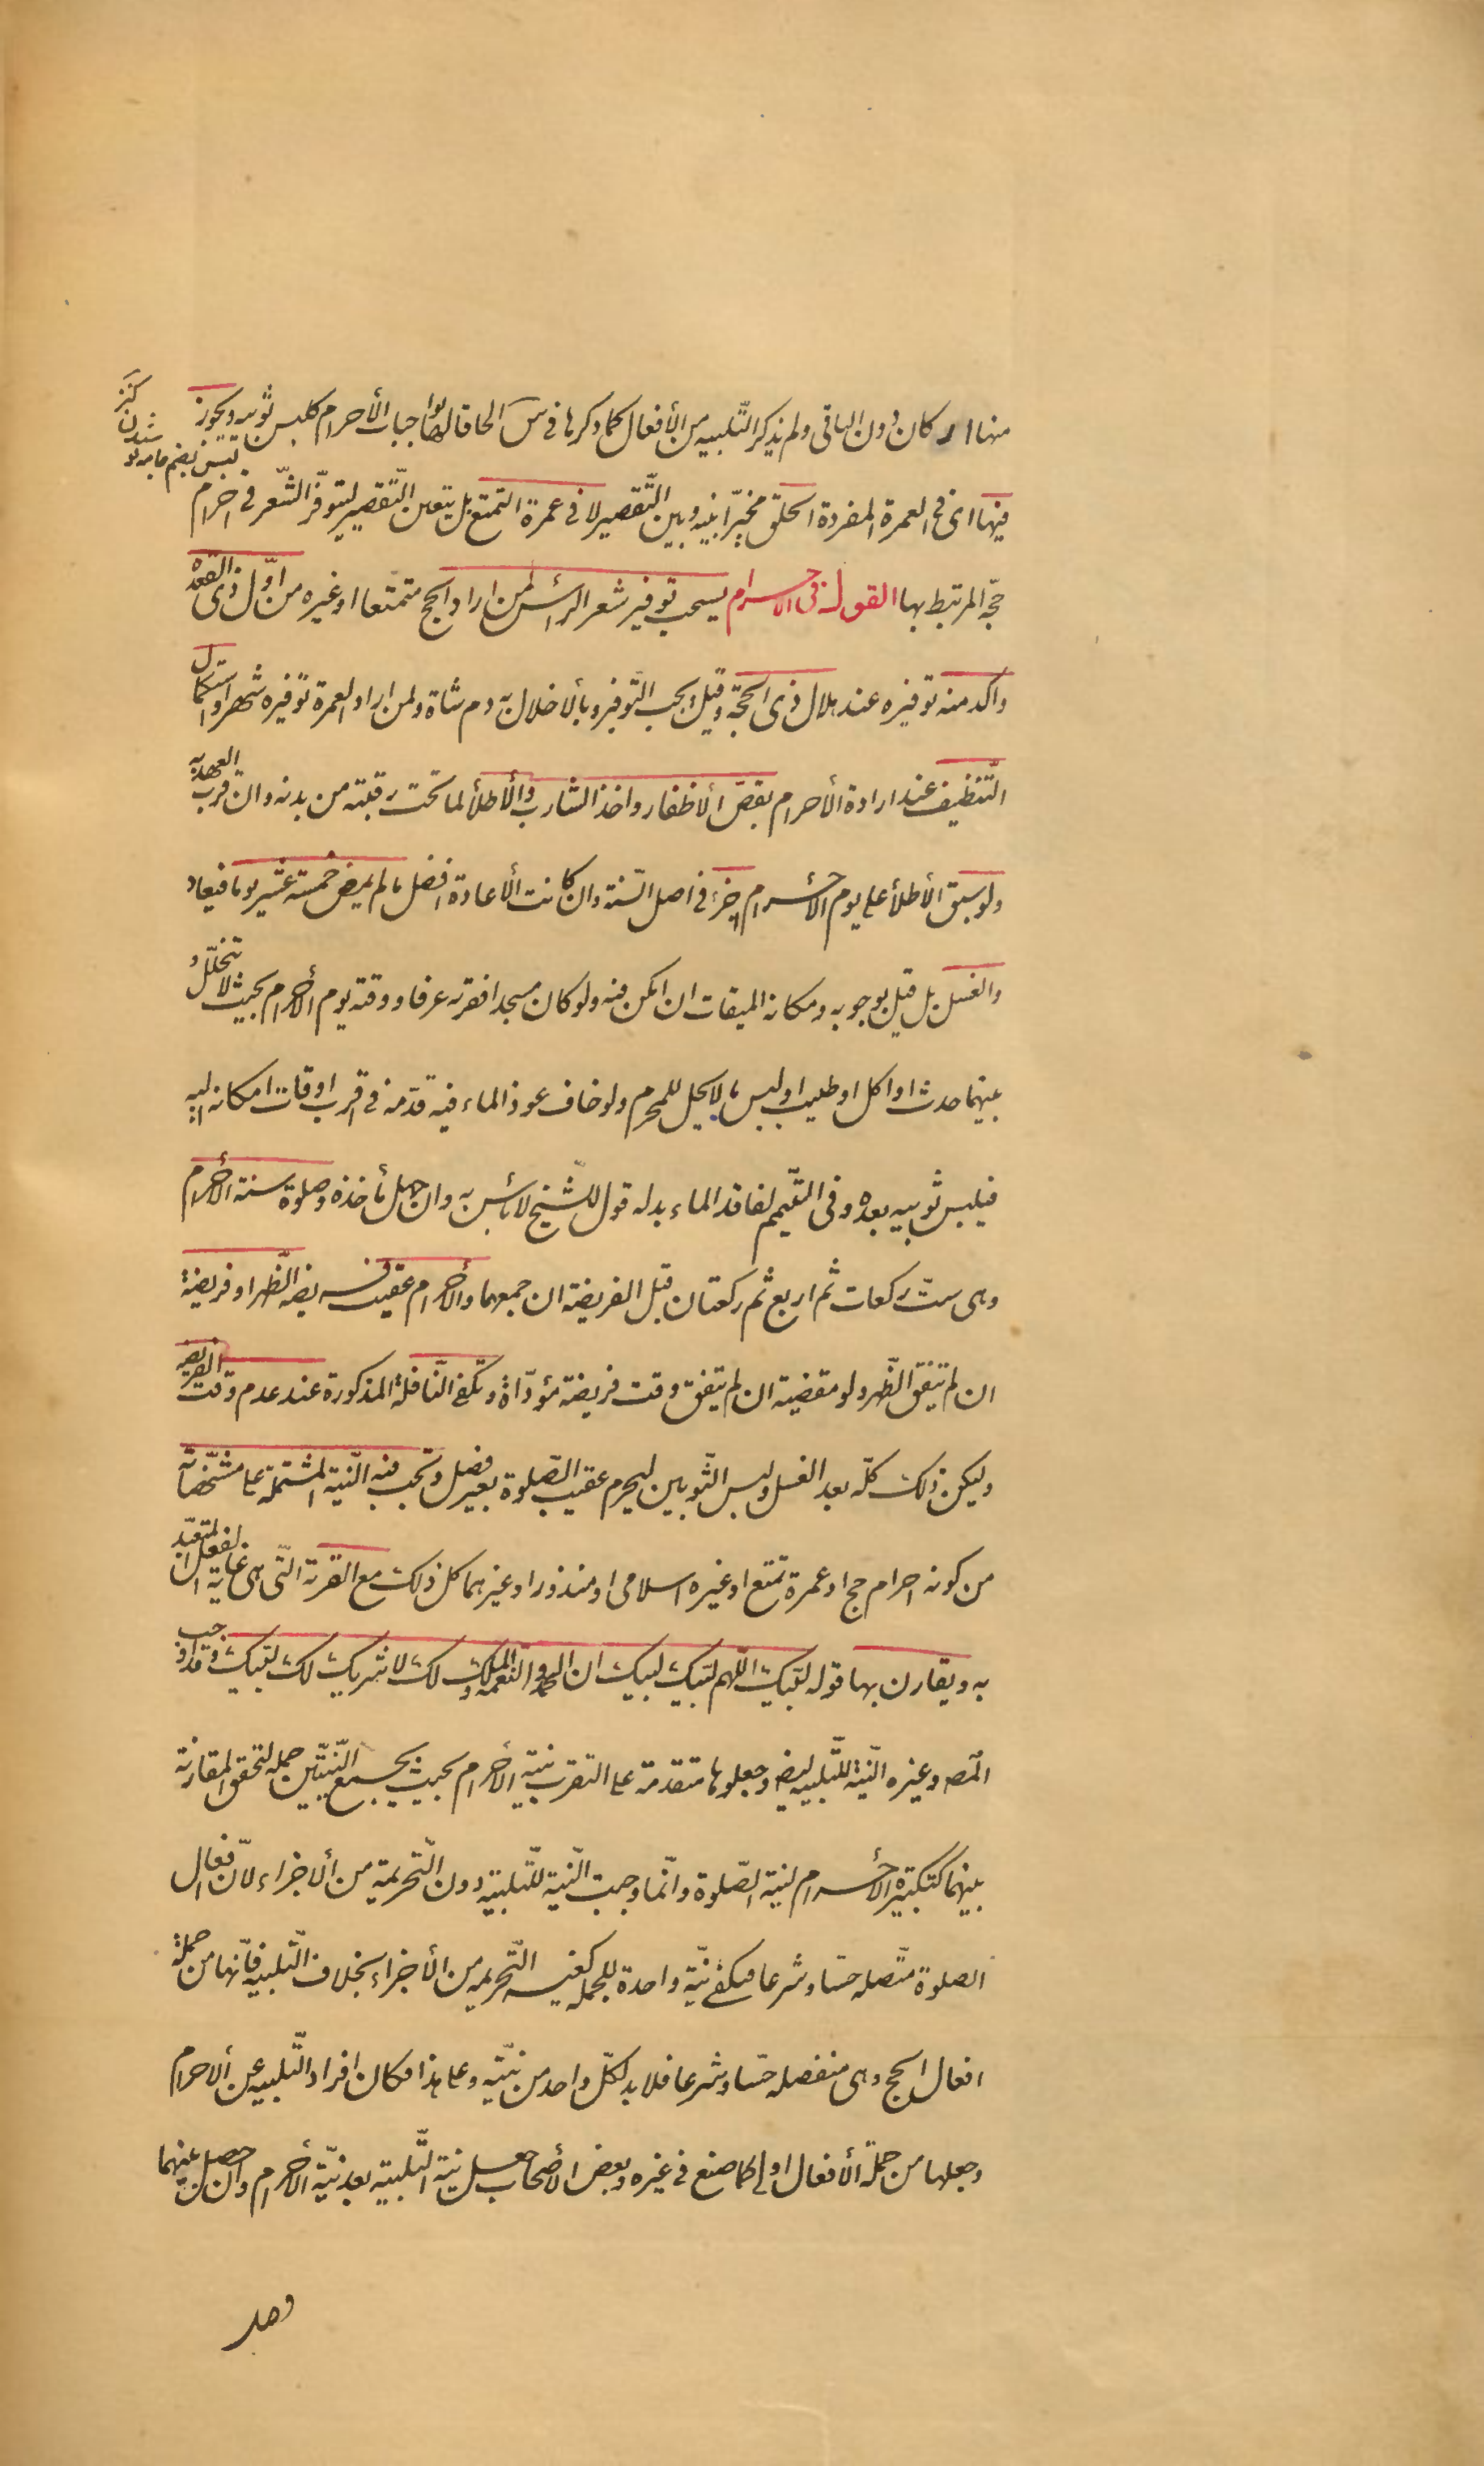 منها اركان دون الباقى ولم يذكر التّلبيه من الأفعال كما ذكرها فى س الحاقا لها بواجبات الأحرام كلبس ثوبيه ويجوز
فيها اى فى العمرة المفردة الحلق مخيّرا بينه وبين التّقصير لا فى عمرة التمتع بل يتعين التّقصير ليتوفّر الشّعر فى احرام
حجّه المرتبط بها القول فى الاحرام يستحب توفير شعر الرأس لمن اراد الحج متمتعا او غيره من اوّل ذى القعده
واكد منه توفيره عند هلال ذى الحجّة وقيل يجب التّوفير وبألاخلال به دم شاة ولمن اراد العمرة توفيره شهرا واستكمال
التّنظيف عند ارادة الأحرام بقصّ ألاظفار واخذ الشارب والأطلأ لما تحت رقبته من بدنه وان قرب العهد به
ولو سبق الأطلأ على يوم الأحرام اجزء فى اصل السّنة وان كانت الأعادة افضل ما لم يمض خمسة عشر يوما فيعاد
والغسل بل قيل بوجوبه ومكانه الميقات ان امكن فيه ولو كان مسجدا فقربه عرفا ووقته يوم الأحرام بحيث لا يتخلّل
بينهما حدث او اكل او طيب او لبس ما لا يحل للمحرم ولو خاف عوز الماء فيه قدّمه فى اقرب اوقات امكانه اليه
فيلبس ثوبيه بعده وفى التّيمم لفاقد الماء بدله قول للشّيخ لا بأس به وان جهل مأخذه وصلوة سنة الأحرام
وهى ستّ ركعات ثم اربع ثم ركعتان قبل الفريضة ان جمعهما والأحرام عقيب فريضه الظّهر او فريضة
ان لم يتفق الظّهر ولو مقضية ان لم يتفق وقت فريضة مؤدّاة ويكفى النّافلة المذكورة عند عدم وقت الفريضه
وليكن ذلك كلّه بعد الغسل ولبس الثّوبين ليحرم عقيب الصّلوة بغير فصل ويجب فيه النّية المشتملة على مشخّصاته
من كونه احرام حج او عمرة تمتع او غيره اسلامى او منذور او غيرهما كل ذلك مع القربة الّتى هى غاية الفعل المتعبّد
به ويقارن بها قوله لبّيك اللّهم لبّيك لبيك ان الحمد والنّعمه والملك لك لا شريك لك لبّيك وقد اوجب
المصـ وغيره النّية للتّلبيه ايضا وجعلوها متقدمة على التقرب بنيّة الأحرام بحيث يجمع النّيّتين جمله لتحقق المقارنة
بينهما كتكبيرة الأحرام لنية الصّلوة وانّما وجبت النّية للتّلبيّة دون التّحريمية من ألاجزاء لانّ افعال
الصلوة متّصله حسّا وشرعا فيكفى نيّة واحدة للجمله كغير التّحريمه من الأجزاء بخلاف التّلبيه فأنّها من جملة
افعال الحج وهى منفصله حسّا وشرعا فلا بد لكلّ واحد من نيّته وعلى هذا فكان افراد التّلبيه عن ألاحرام
وجعلها من جملة ألافعال اولى كما صنع فى غيره وبعض الأصحاب جعل نية التّلبيّه بعد نيّة الأحرام وان حصل بينهما
فصل